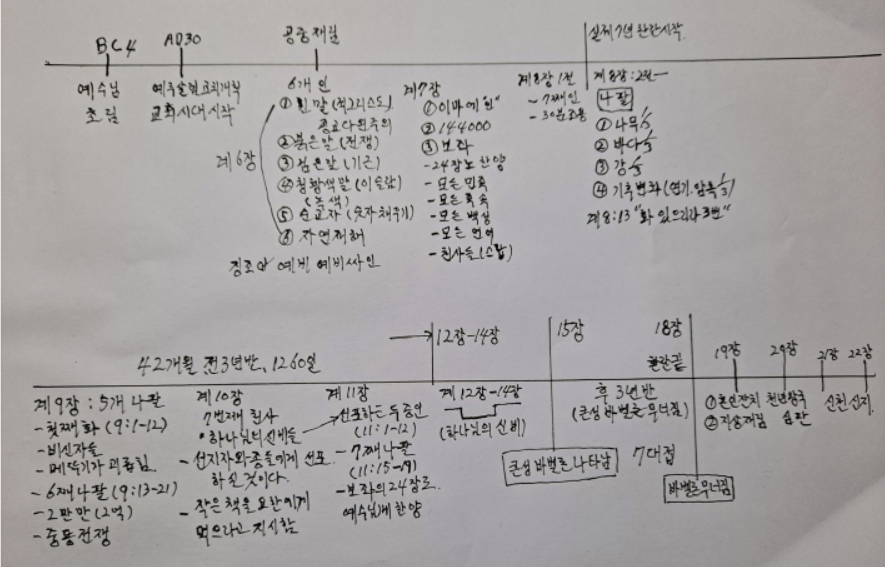 BC4
예수님
초림
AD30
예루살렘교회개복
교회시대 시작
공중재림
6개 인
계6장
① 흰 말 (적그리스도)
종교다원주의
② 붉은말 (전쟁)
③ 검은말 (기근)
④ 청황색말 (이슬람)
(녹색)
⑤ 순교자 (숫자채우기)
⑥ 자연재해
징조와 예비 예비싸인
계7장
① 이마에 인"
② 144000
③ 보좌
-24장로 찬양
- 모든 민족
- 모든 족속
- 모든 백성
- 모든 언어
- 천사들(스랍)
계8장 1절
- 7째인
- 30분조용
실제 7년 환란시작
계8장: 2절~
나팔
① 나무 1/3
② 바다 1/3
③ 강 1/3
④ 기후변화 (연기.암흑 1/3)
계8:13 "화 있으리라 3번"
42개월 전3년반, 1260일
12장-14장
15장
18장
환란끝
19장
20장
21장
22장
계9장: 5개 나팔
- 첫째 화 (9:1-12)
- 비신자들
- 메뚜기가 괴롭힘
- 6째 나팔 (9:13-21)
- 2만만 (2억)
- 중동전쟁
계10장
7번째 천사
하나님의신비를
- 선지자와 종들에게 선포
하신 것이다.
- 작은 책을 요한에게
먹으라고 지시함
계11장
선포하는 두 증인
(11:1-12)
- 7째 나팔
(11:15-19)
- 보좌의 24장로
예수님께 찬양
계12장-14장
(하나님의 신비)
큰성 바벨론 나타남
후 3년반
(큰성 바벨론 무너짐)
7대접
바벨론무너짐
① 혼인잔치
② 지상재림
천년왕국
심판
신천신지